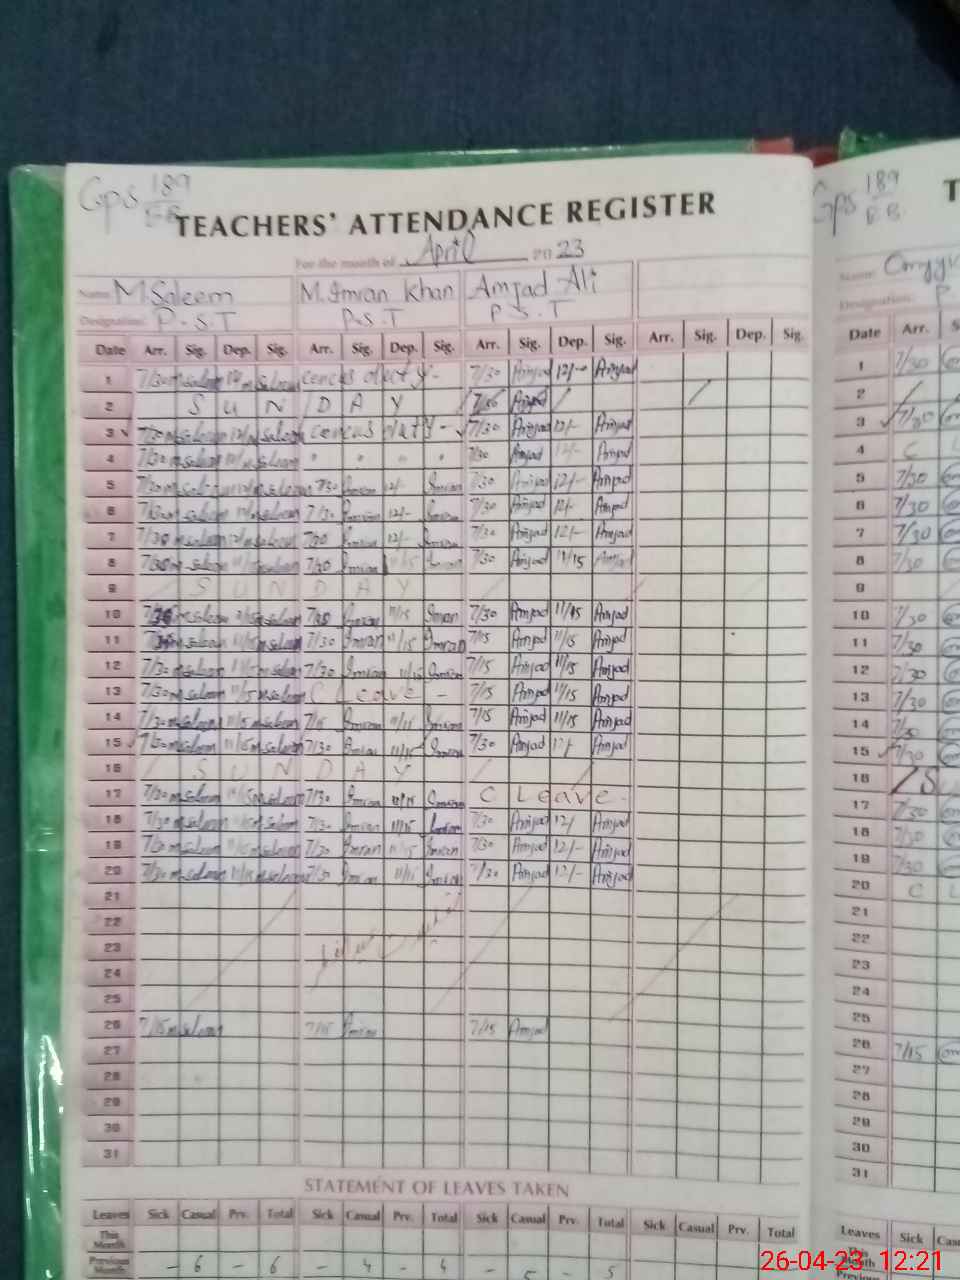 Gps 189
TEACHERS' ATTENDANCE REGISTER
For the month of April 2023
Name: M.Saleem M.Imran Khan Amjad Ali
Designation: P.S.T P.S.T P.S.T
Date Arr. Sig. Dep. Sig. Arr. Sig. Dep. Sig. Arr. Sig. Dep. Sig. Arr. Sig. Dep. Sig.
1 7/30 m.saleem 12/ m.saleem cencus duty - 7/30 Amjad 12/- Amjad
2 S U N D A Y 7/30 Amjad
3 7/30 m.saleem 12/ m.saleem cencus duty - 7/30 Amjad 12/- Amjad
4 7/30 m.saleem 12/ m.saleem " " " " 7/30 Amjad 12/- Amjad
5 7/30 m.saleem 12/ m.saleem 7/30 Imran 12/- Imran 7/30 Amjad 12/- Amjad
6 7/30 m.saleem 12/ m.saleem 7/30 Imran 12/- Imran 7/30 Amjad 12/- Amjad
7 7/30 m.saleem 12/ m.saleem 7/30 Imran 12/- Imran 7/30 Amjad 12/- Amjad
8 7/30 m.saleem 11/15 m.saleem 7/30 Imran 11/15 Imran 7/30 Amjad 11/15 Amjad
9 S U N D A Y
10 7/30 m.saleem 11/15 m.saleem 7/30 Imran 11/15 Imran 7/30 Amjad 11/15 Amjad
11 7/30 m.saleem 11/15 m.saleem 7/30 Imran 11/15 Imran 7/15 Amjad 11/15 Amjad
12 7/30 m.saleem 11/15 m.saleem 7/30 Imran 11/15 Imran 7/15 Amjad 11/15 Amjad
13 7/30 m.saleem 11/15 m.saleem C Leave - 7/15 Amjad 11/15 Amjad
14 7/30 m.saleem 11/15 m.saleem 7/15 Imran 11/15 Imran 7/15 Amjad 11/15 Amjad
15 7/30 m.saleem 11/15 m.saleem 7/30 Imran 11/15 Imran 7/30 Amjad 12/- Amjad
16 S U N D A Y
17 7/30 m.saleem 11/15 m.saleem 7/30 Imran 11/15 Imran C Leave -
18 7/30 m.saleem 11/15 m.saleem 7/30 Imran 11/15 Imran 7/30 Amjad 12/- Amjad
19 7/30 m.saleem 11/15 m.saleem 7/30 Imran 11/15 Imran 7/30 Amjad 12/- Amjad
20 7/30 m.saleem 11/15 m.saleem 7/30 Imran 11/15 Imran 7/30 Amjad 12/- Amjad
21
22
23
24
25
26 7/15 m.saleem 7/15 Imran 7/15 Amjad
27
28
29
30
31
STATEMENT OF LEAVES TAKEN
Leaves Sick Casual Prv. Total Sick Casual Prv. Total Sick Casual Prv. Total Sick Casual Prv. Total
This Month
Previous Month - 6 - 6 - 4 - 4 - 5 - 5
Gps 189
E.B.
T
Name:
Designation: P.
Date Arr. S
1 7/30
2
3 7/30
4 C L
5 7/30
6 7/30
7 7/30
8 7/30
9
10 7/30
11 7/30
12 7/30
13 7/30
14 7/30
15 7/30
16 S
17 7/30
18 7/30
19 7/30
20 C L
21
22
23
24
25
26 7/15
27
28
29
30
31
Leaves Sick Cas
This Month
26-04-23 12:21